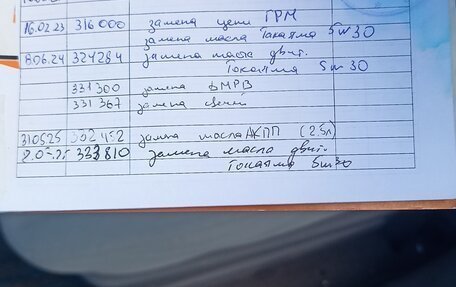 16.02.23 316000 замена цепи ГРМ
замена масла Токаяма 5w30
8.06.24 324284 замена масла двиг.
Токаяма 5w30
331300 замена ДМРВ
331367 замена свечи
310525 замена масла АКПП (2.5л)
333810 замена масла двиг.
Токаяма 5w30